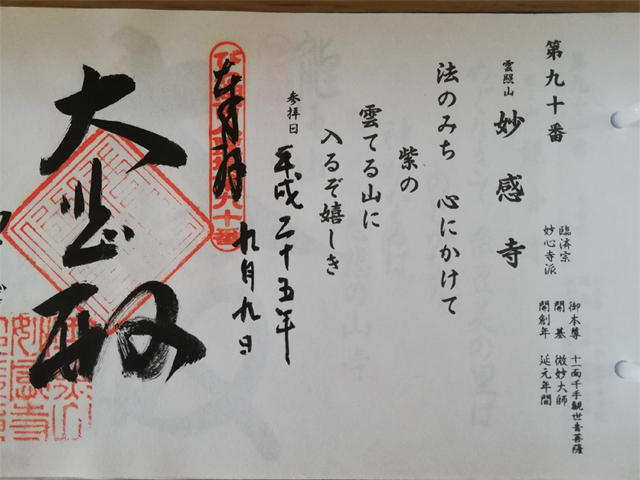 第九十番
雲照山 妙感寺
臨済宗
妙心寺派
御本尊 十一面千手観世音菩薩
開基 微妙大師
開創年 延元年間
法のみち 心にかけて
紫の
雲てる山に
入るぞ嬉しき
参拝日 平成二十五年
九月九日
奉拝
大悲殿